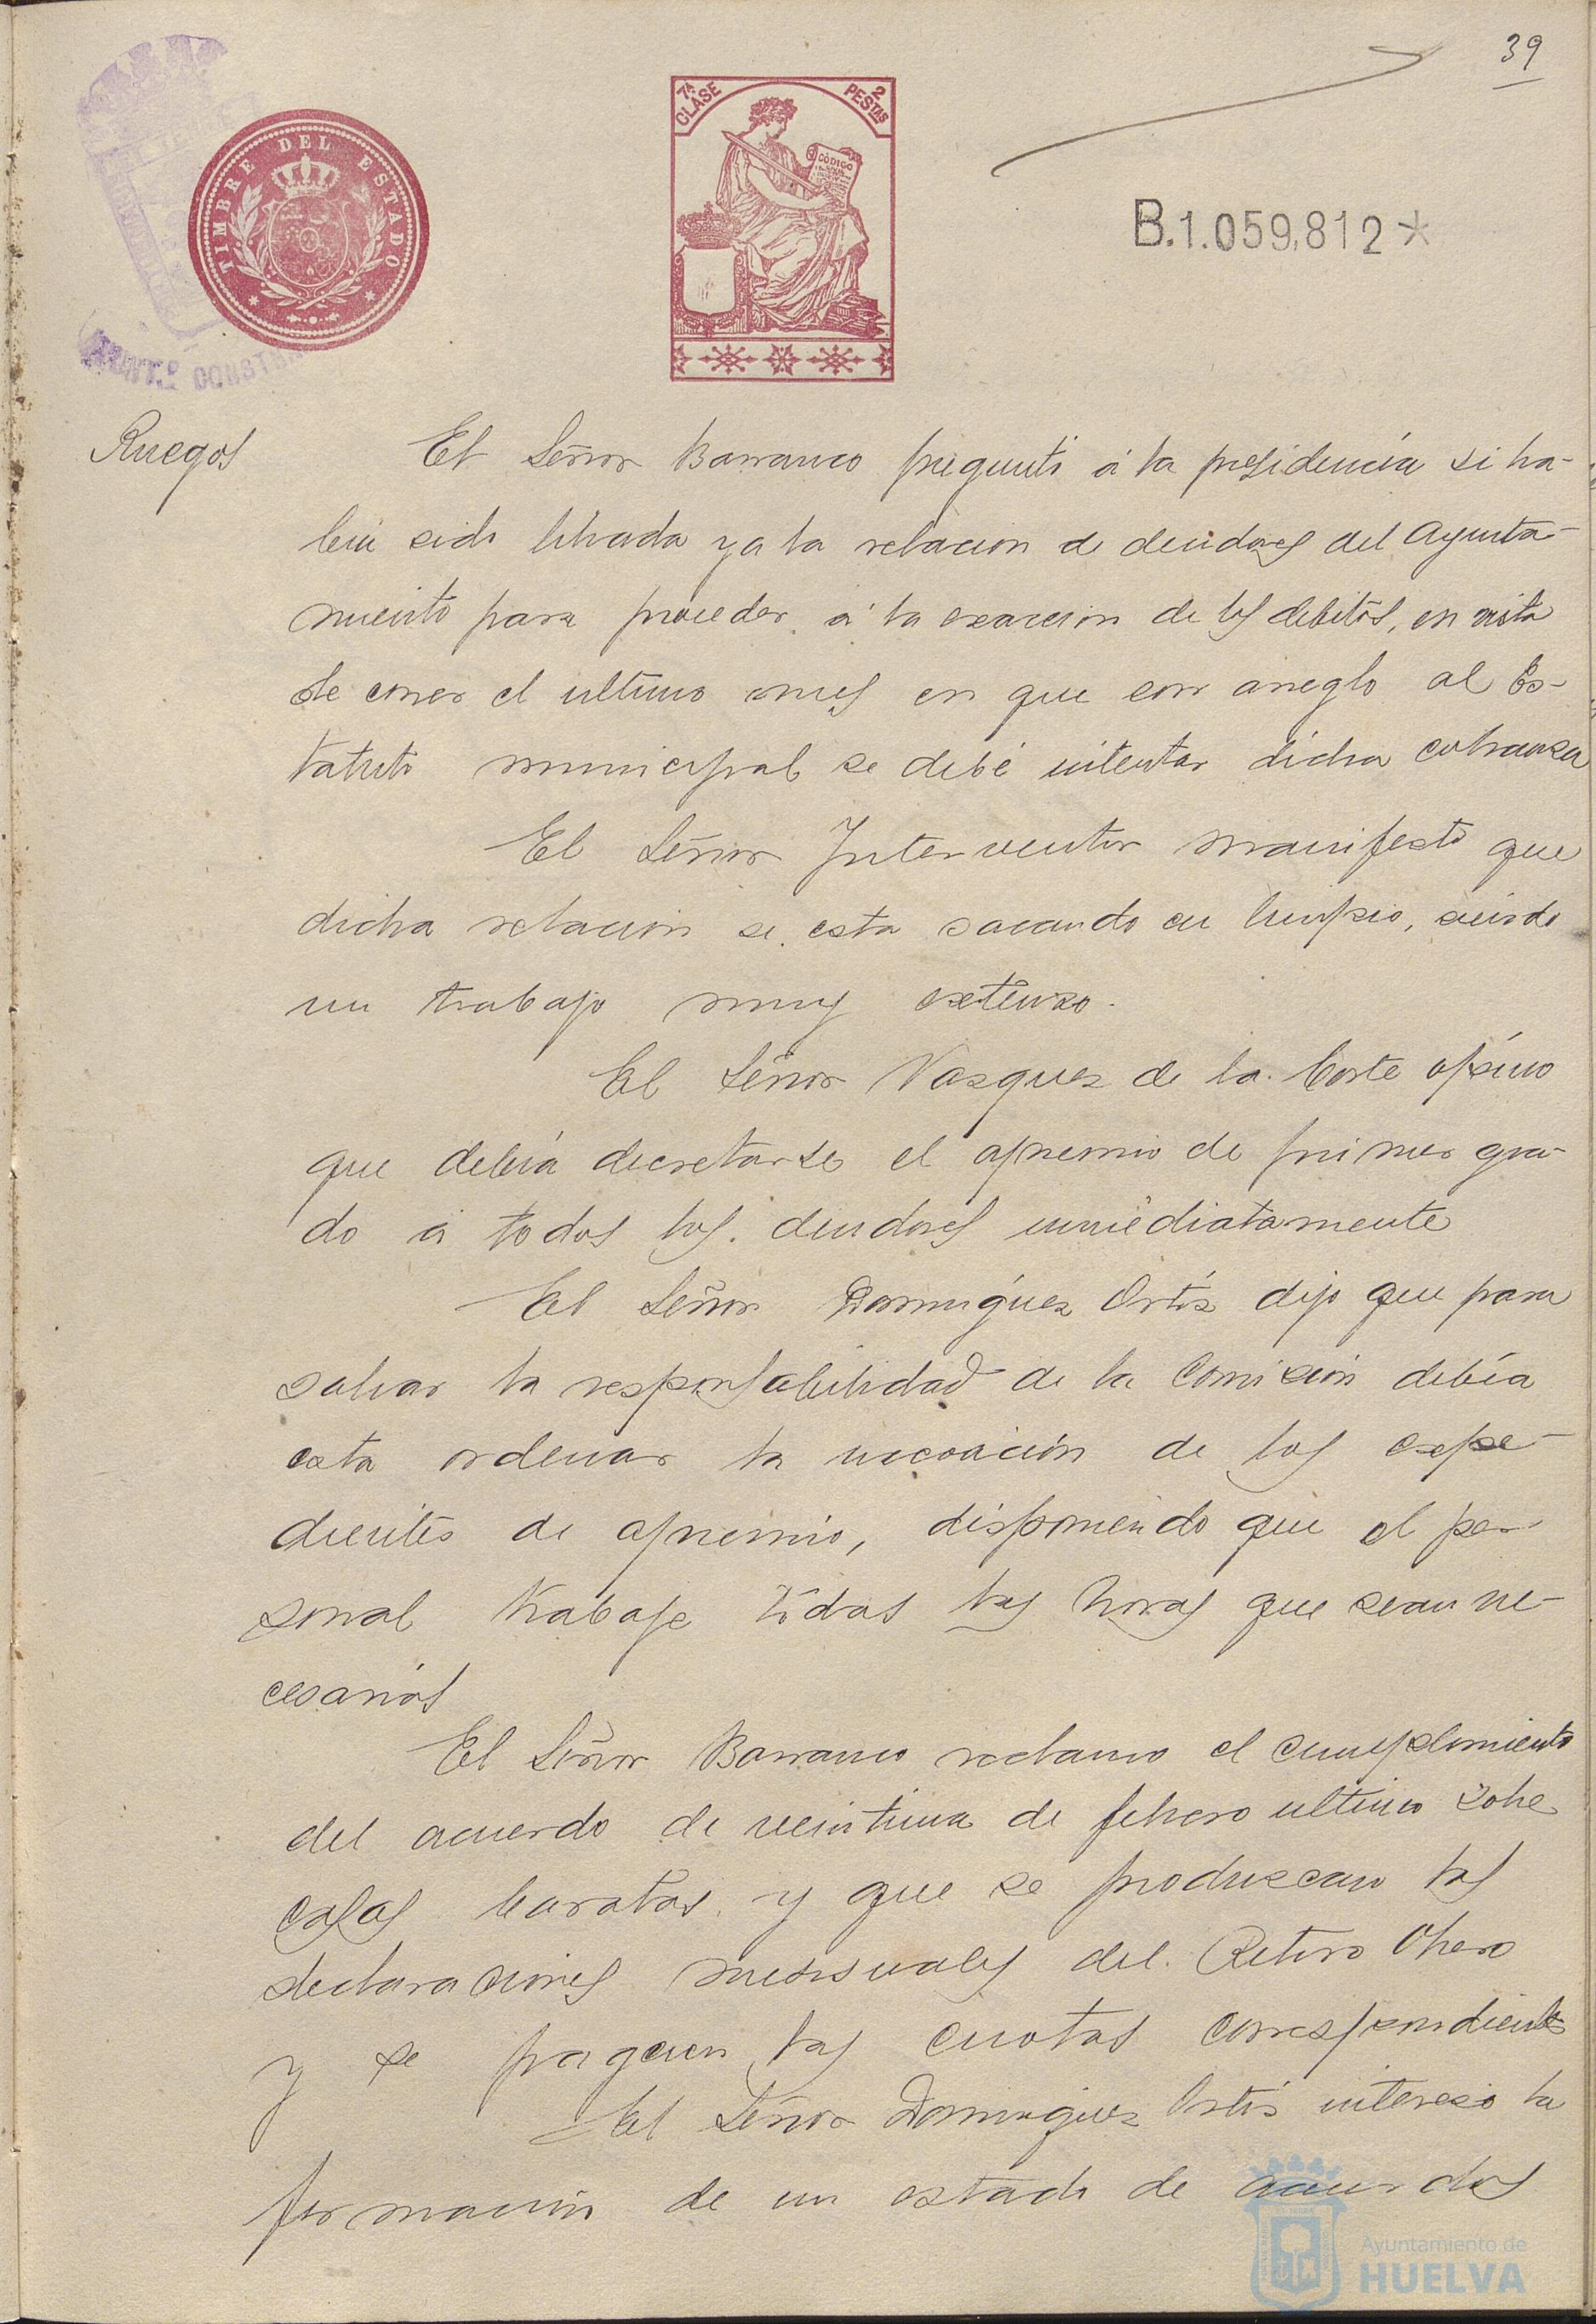 39
7ª CLASE
2 PESTAS
TIMBRE DEL ESTADO
CÓDIGO
B.1.059,812*
CONST
Ruegos
El Señor Barranco preguntó á la presidencia si ha-
bia sido librada ya la relacion de deudores del Ayunta-
miento para proceder á la exaccion de los debitos, en vista
de correr el ultimo mes en que con arreglo al Es-
tatuto municipal se debe intentar dicha cobranza
El Señor Interventor manifestó que
dicha relacion se esta sacando en limpio, siendo
un trabajo muy extenso.
El Señor Vazquez de la Corte opino
que debia decretarse el apremio de primer gra-
do á todos los deudores inmediatamente
El Señor Dominguez Ortiz dijo que para
salvar la responsabilidad de la Comision debía
esta ordenar la incoacción de los expe-
dientes de apremio, disponiendo que el per-
sonal trabaje todas las horas que sean ne-
cesarias
El Señor Barranco reclamo el cumplimiento
del acuerdo de veintiuna de febrero ultimo sobre
casas baratas y que se produzcan las
declaraciones mensuales del Retiro Obrero
y se paguen las cuotas correspondientes
El Señor Dominguez Ortiz intereso la
formación de un estado de acuerdos
Ayuntamiento de
HUELVA